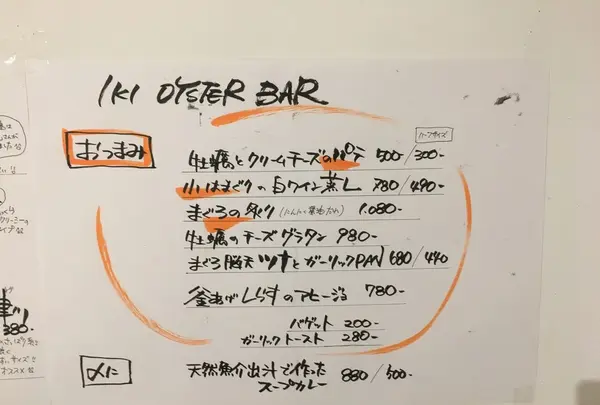 IKI OYSTER BAR
ハーフサイズ
おつまみ
牡蠣とクリームチーズのパテ 500-/300-
小はまぐりの白ワイン蒸し 780/490-
まぐろの炙り (にんにく醤油だれ) 1.080-
牡蠣のチーズグラタン 980-
まぐろ脳天ツナとガーリックPAN 680/440
釜あげしらすのアヒージョ 780-
バゲット 200-
ガーリックトースト 280-
〆に
天然魚介出汁で作った
スープカレー 880/500-
380-